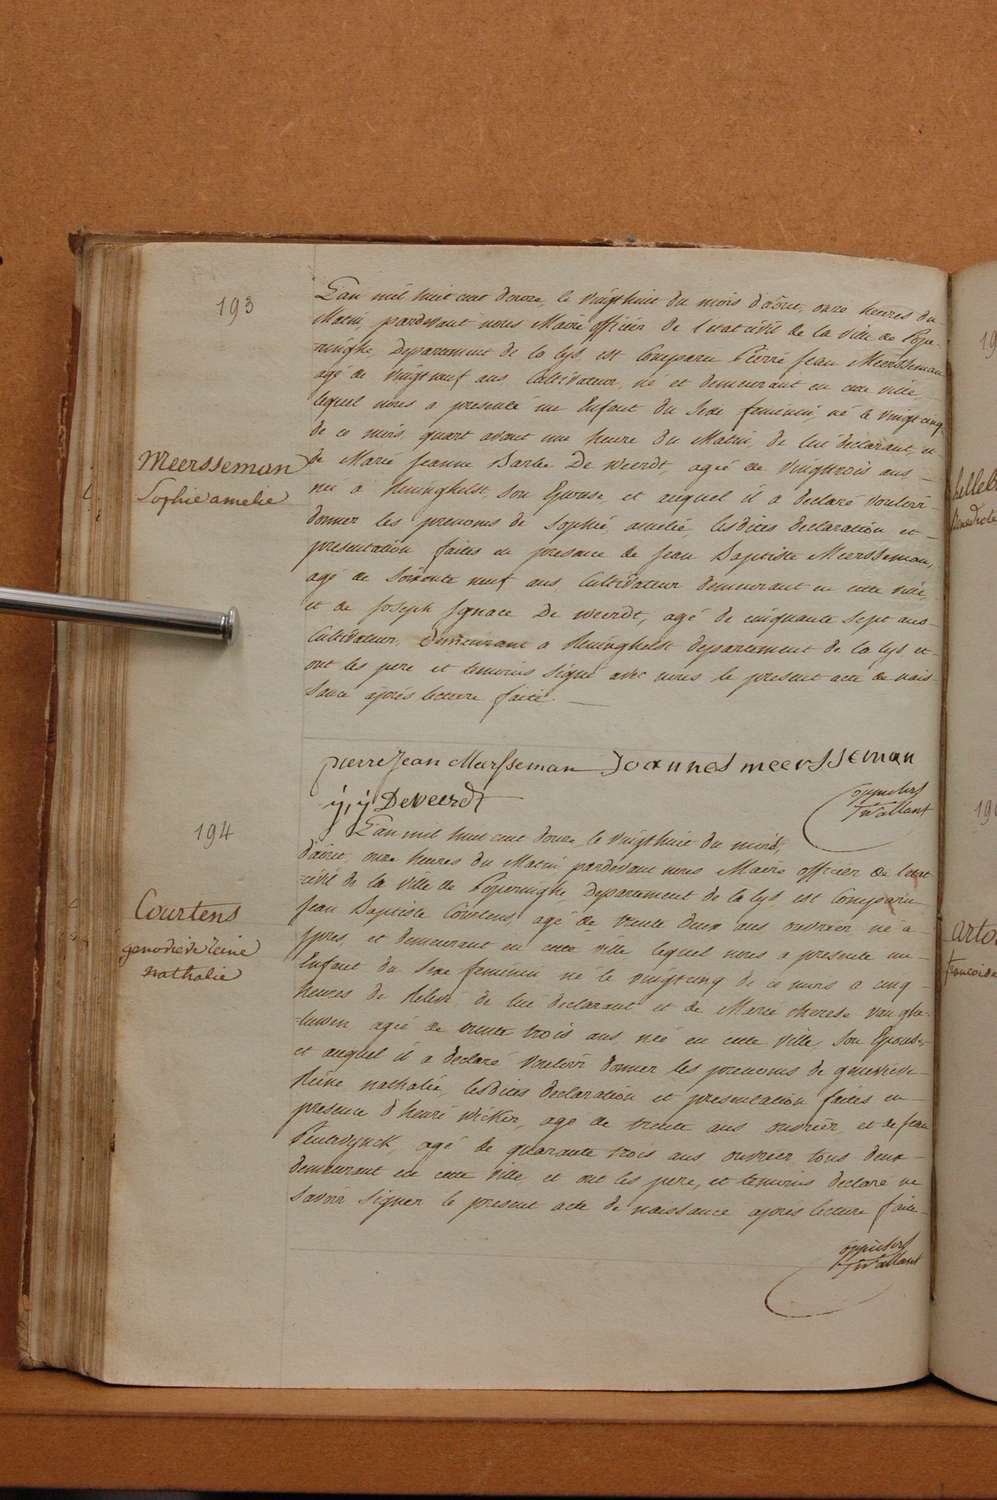 193
L'an mil huit cent douze, le vingthuit du mois d'août, onze heures du
Matin, pardevant nous Maire officier de l'état civil de la ville de Pope-
ringhe, Departement de la lys, est Comparu Pierre Jean Meersseman
agé de vingt neuf ans Cultivateur, né et demeurant en cette ville
lequel nous a presenté un Enfant du Sexe feminin, né le vingt cinq
de ce mois, quart avant une heure du Matin, de lui declarant, et
de Marie Jeanne Barbe De weerdt, agée de vingttrois ans
née à Reninghelst, son Epouse et auquel il a declaré vouloir
donner les prenoms de Sophie, amelie, lesdites declaration et
presentation faites en presence de Jean Baptiste Meersseman,
agé de soixante neuf ans, Cultivateur demeurant en cette ville,
et de Joseph Ignace De weerdt, agé de cinquante sept ans
Cultivateur, demeurant a Reninghelst departement de la lys et
ont les pere et temoins signé avec nous le present acte de nais-
sance après lecture faite.
Meersseman
Sophie amelie
pierre Jean Meersseman Joannes meersseman
j, j Deweerdt
194
L'an mil huit cent douze, le vingthuit du mois
d'août, onze heures du Matin pardevant nous Maire officier de l'état
civil de la ville de Poperinghe, departement de la lys, est Comparu
Jean Baptiste Courtens, agé de trente deux ans ouvrier né à
Ypres, et demeurant en cette ville lequel nous a presenté un
Enfant du Sexe feminin né le vingtcinq de ce mois a cinq
heures de relevé de lui declarant et de Marie therese van ghe-
luwen agée de trente trois ans, née en cette ville, son Epouse
et auquel il a declaré vouloir donner les prenoms de genevieve
Reine nathalie, lesdites declaration et presentation faites en
presence d'henri wicker, agé de trente ans ouvrier, et de Jean
agé de quarante trois ans ouvrier tous deux
demeurant en cette ville, et ont les pere, et temoins declaré ne
savoir signer le present acte de naissance après lecture faite
Courtens
Reine
nathalie